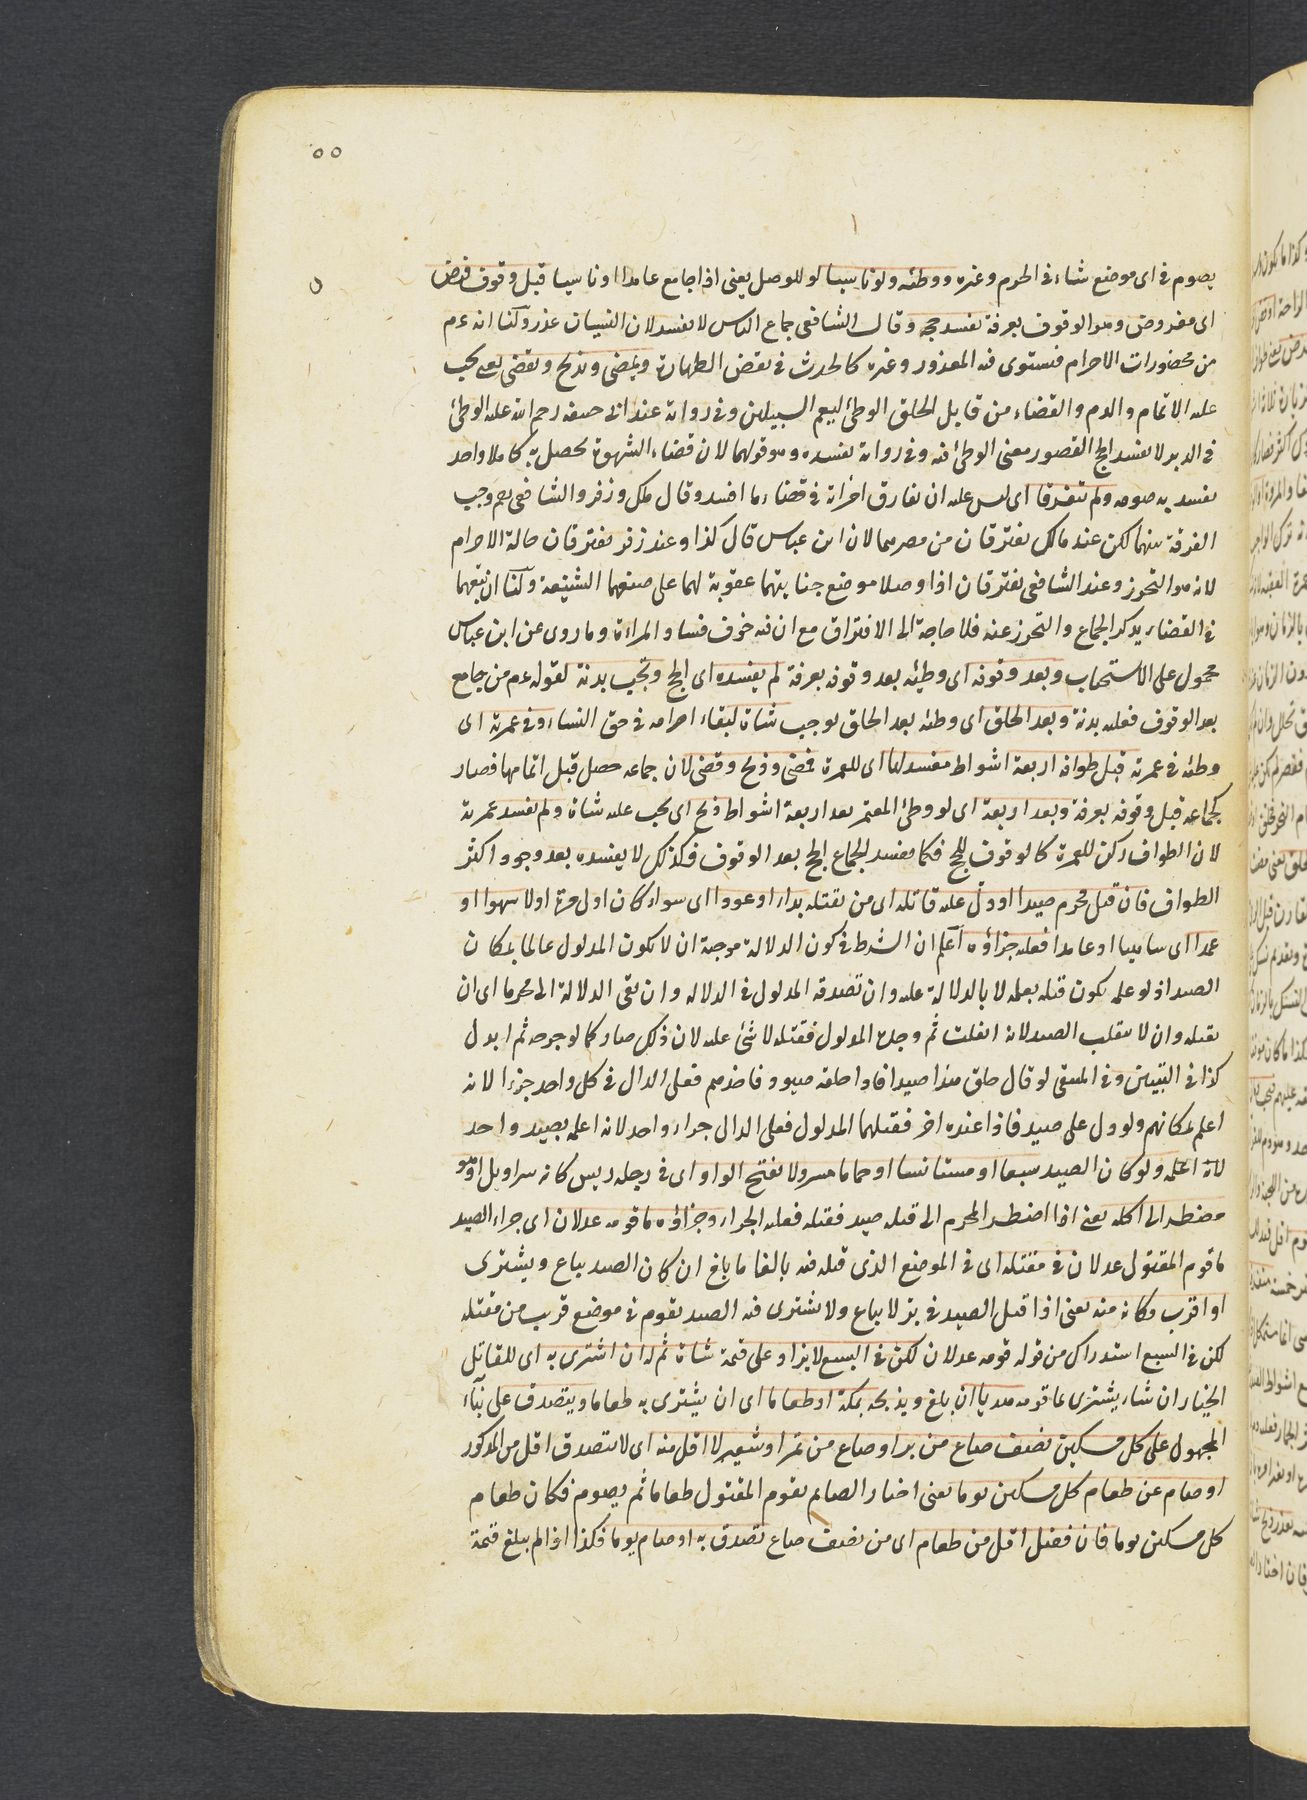 ٥٥
يصوم فى اى موضع شاء فى الحرم وغيره ووطئه ولو ناسيا لو للوصل يعنى اذا جامع عامدا او ناسيا قبل وقوف فرض
اى مفروض وهو الوقوف بعرفة يفسد حجه وقال الشافعى جماع الناسى لا يفسد لان النسيان عذر ولنا انه عم
من محضورات الاحرام فيستوى فيه المعذور وغيره كالحدث فى نقض الطهارة ويمضى ويذبح ويقضى يعنى يجب
عليه الاتمام والدم والقضاء من قابل اطلق الوطئ ليعم السبيلين وفى رواية عند ابى حنيفه رحم الله عليه الوطئ
فى الدبر لا يفسد الحج لقصور معنى الوطئ فيه وفى رواية يفسده وهو قولهما لان قضاء الشهوة يحصل به كاملا ولهذا
يفسد به صومه ولم يتفرقا اى ليس عليه ان يفارق امرأته فى قضاء ما افسد وقال ملك وزفر والشافعى رحم وجب
الفرقة بينهما لكن عند مالك يفترقان من مصرهما لان ابن عباس قال كذا وعند زفر يفترقان حالة الاحرام
لانه هو التحرز وعند الشافعى يفترقان اذا وصلا موضع جنايتهما عقوبة لهما على صنعهما الشنيعة ولنا ان تبعهما
فى القضاء يذكر الجماع والتحرز عنه فلا حاجة الى الافتراق مع ان فيه خوف فساد المراءة وما روى عن ابن عباس
محمول على الاستحباب وبعد وقوفه اى وطئه بعد وقوفه بعرفة لم يفسده اى الحج وتجب بدنة لقوله عم من جامع
بعد الوقوف فعليه بدنة وبعد الحلق اى وطئه بعد الحلق يوجب شاة لبقاء احرامه فى حق النساء وفى عمرته اى
وطئه فى عمرته قبل طوافه اربعة اشواط مفسد لها اى للعمرة فمضى وذبح وقضى لان جماعه حصل قبل اتمامها فصار
كجماعه قبل وقوفه بعرفة وبعد اربعة اى لو وطئ المعتمر بعد اربعة اشواط ذبح اى يجب عليه شاة ولم يفسد عمرته
لان الطواف ركن للعمرة كالوقوف للحج فكما يفسد الجماع الحج بعد الوقوف فكذلك لا يفسده بعد وجود اكثر
الطواف فان قتل محرم صيدا او دل عليه قاتله اى من يقتله بداء او عودا اى سواء كان اول مرة اولا سهوا او
عمدا اى ساهيا او عامدا فعليه جزاؤه اعلم ان الشرط فى كون الدلالة موجبة ان لا يكون المدلول عالما بمكان
الصيد اذ لو علم يكون قتله بعلمه لا بالدلالة عليه وان تصدقه المدلول فى الدلاله وان يبقى الدلالة الى محرما اى ان
يقتله وان لا ينفلت الصيد لانه انفلت ثم وجده المدلول فقتله لا شئ عليه لان ذلك صار كما لو جرحه ثم ابدل
كذا فى التبيين وفى المنتقى لو قال خلق هذا صيدا فاذا خلفه صيود فاخذهم فعلى الدال فى كل واحد جزاء لانه
اعلم بمكانهم ولو دل على صيد فاذا عنده اخر فقتلهما المدلول فعلى الدال جزاء واحد لانه اعلمه بصيد واحد
لانه اعلمه ولو كان الصيد سبعا او مستانسا او حماما مسرولا بفتح الواو اى فى رجله ريش كانه سراويل او هو
مضطر الى اكله يعنى اذا اضطر المحرم الى قتله صيد فقتله فعليه الجزاء وجزاؤه ما قومه عدلان اى جزاء الصيد
ما قوم المقتول عدلان فى مقتله اى فى الموضع الذى قتله فيه بالغا ما بلغ ان كان الصيد يباع ويشترى
او اقرب مكانه منه يعنى اذا قتل الصيد فى بر لا يباع ولا يشترى فيه الصيد يقوم فى موضع قريب من مقتله
لكن فى السبع استدراك من قوله قومه عدلان لكن فى السبع لا يزاد على قيمة شاة ثم له ان اشترى به اى للقاتل
الخيار ان شاء يشترى بما قومه هديا ان بلغ ويذبحه بمكة او طعاما اى ان يشترى به طعاما ويتصدق على بناء
المجهول على كل مسكين نصف صاع من بر او صاع من تمر او شعير لا اقل منه اى لا يتصدق اقل من المذكور
او صام عن طعام كل مسكين يوما يعنى اختار الصايم يقوم المقتول طعاما ثم يصوم فكان طعام
كل مسكين يوما فان فضل اقل من طعام اى من نصف صاع تصدق به او صام يوما فكذا اذا لم يبلغ قيمة